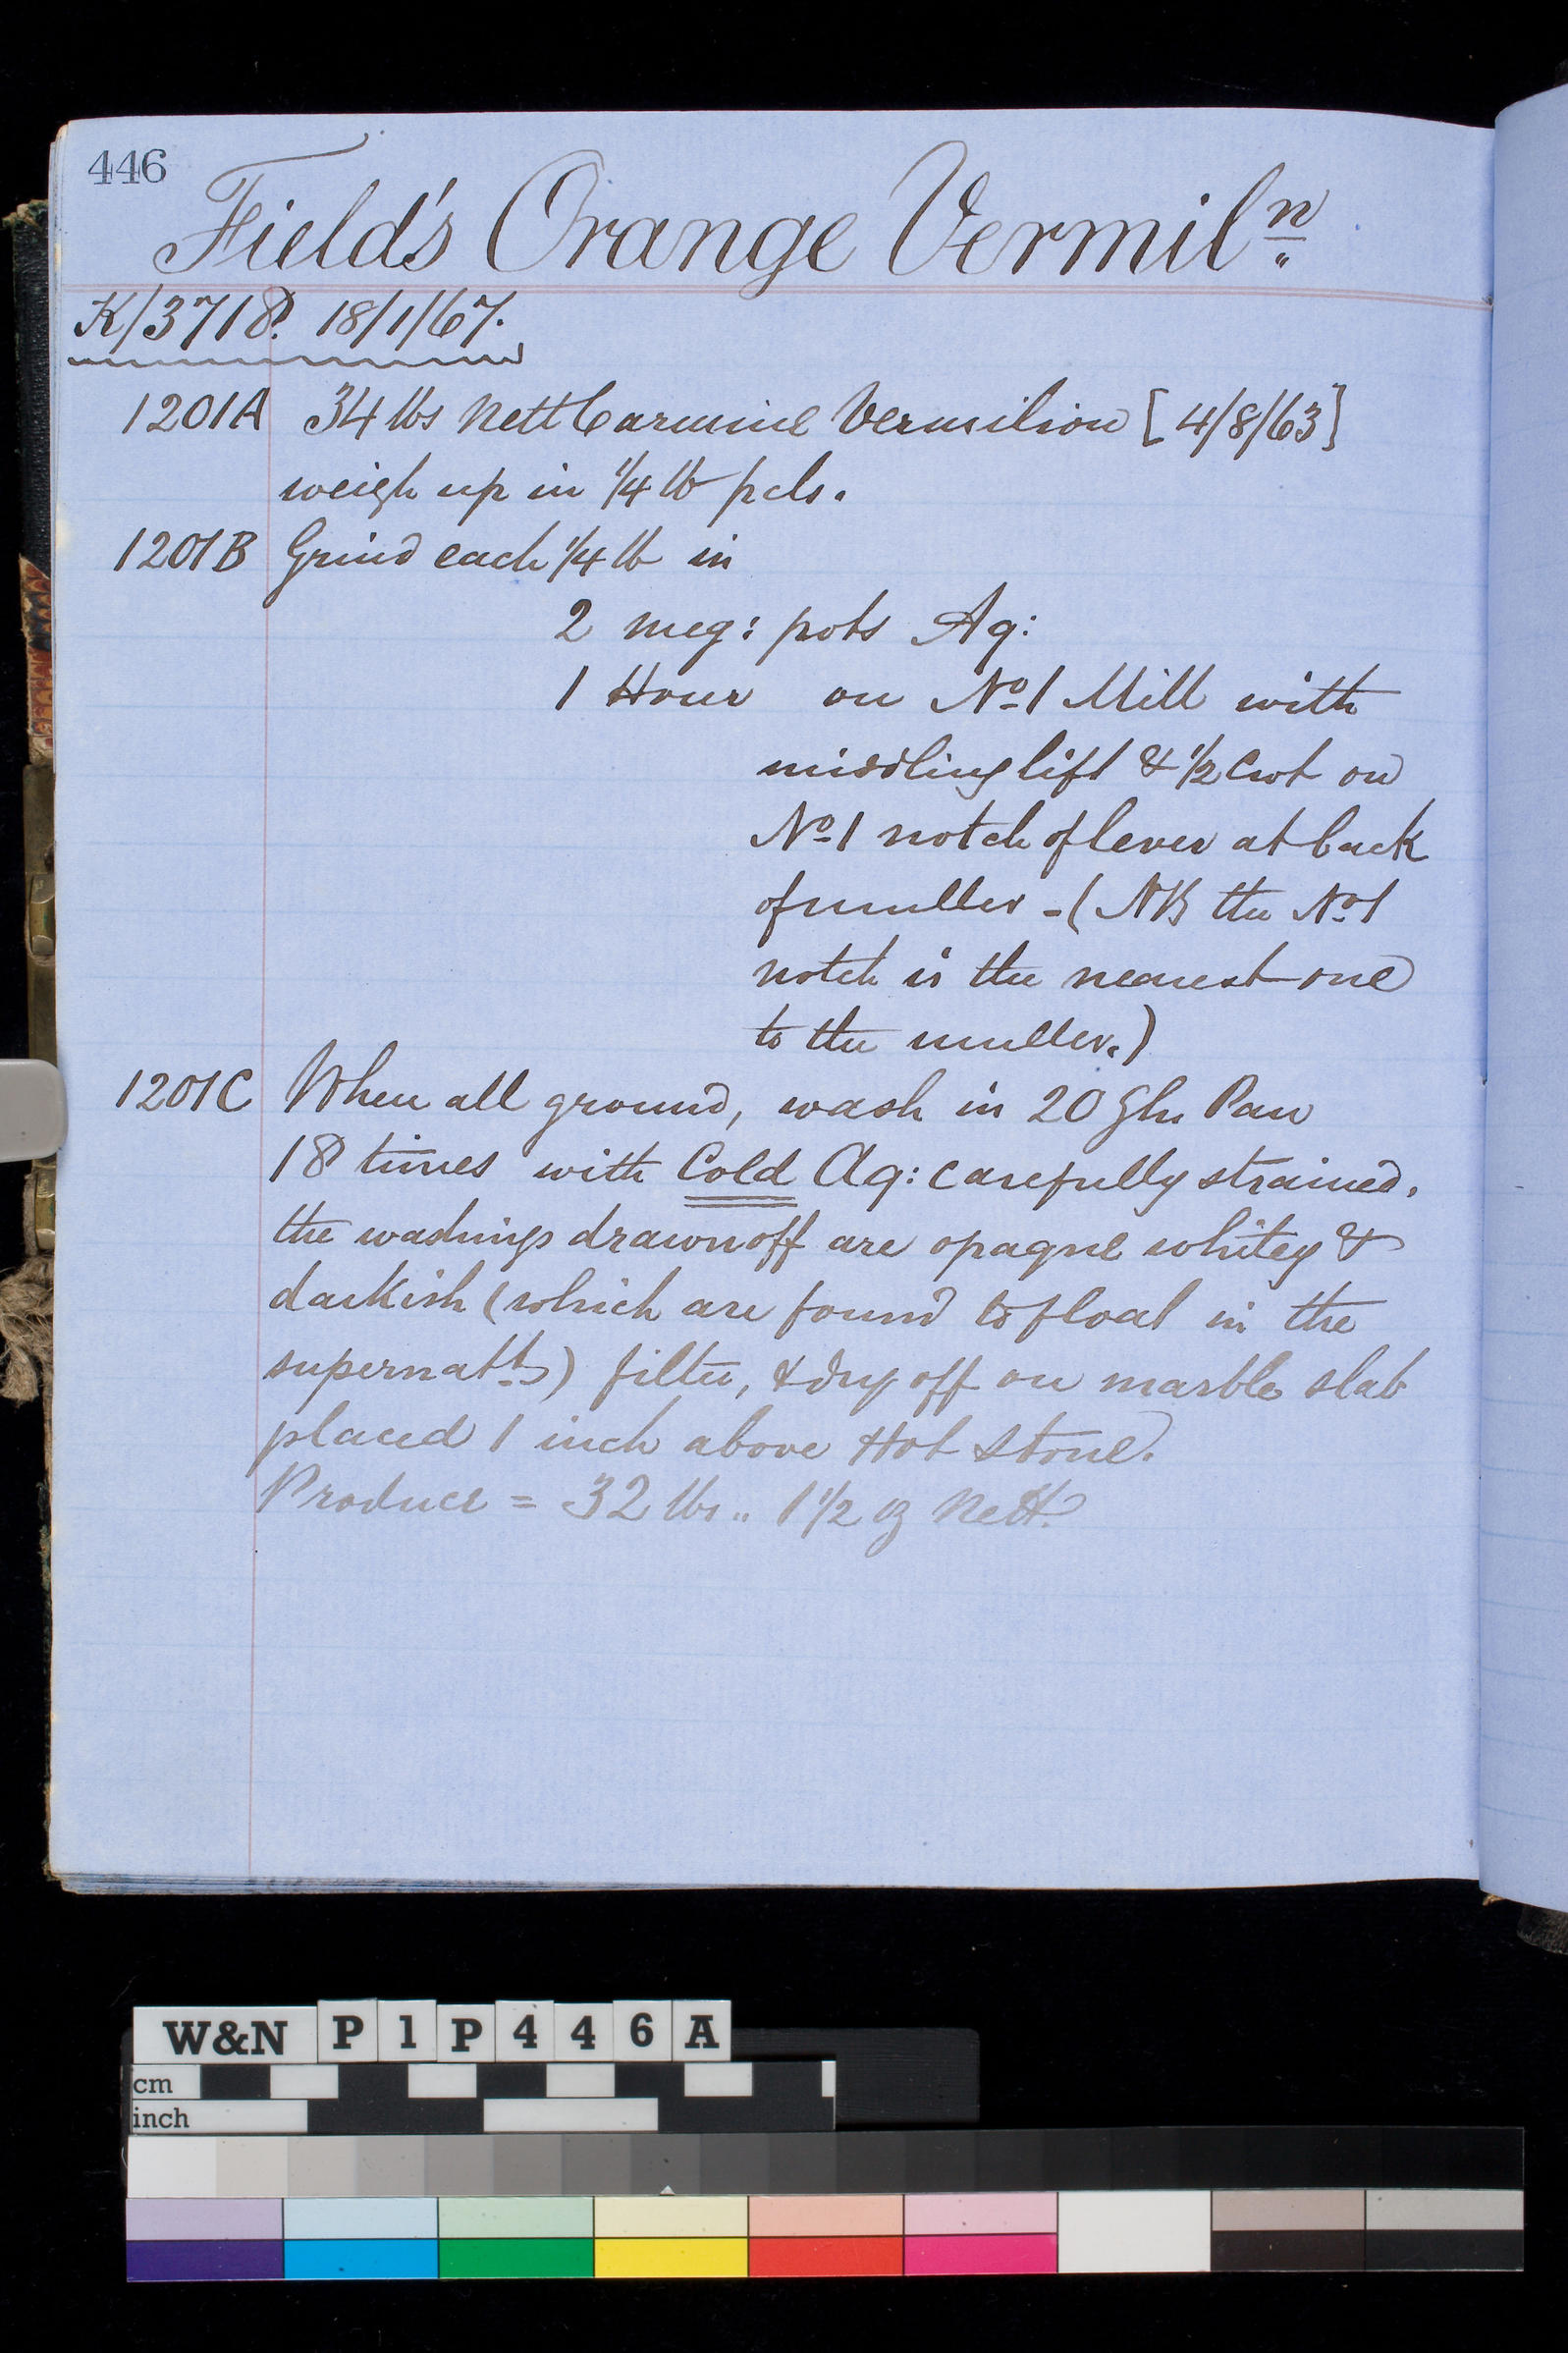 446
Field's Orange Vermiln
K/3718. 18/1/67.
1201A 34 lbs nett Carmine Vermilion [4/8/63]
weigh up in 1/4 lb pcls.
1201B Grind each 1/4 lb in
2 meg: pots Aq:
1 Hour on No 1 Mill with
middling lift & 1/2 Cwt on
No 1 notch of lever at back
of muller - (NB the No 1
notch is the nearest one
to the muller.)
1201C When all ground, wash in 20 Gln Pan
18 times with Cold Aq: carefully strained.
the washings drawn off are opaque whitey &
darkish (which are found to float in the
supernatts) filter, & dry off on marble slab
placed 1 inch above Hot Stone.
Produce = 32 lbs .. 1 1/2 oz Nett.
W&N P1P446A
cm
inch